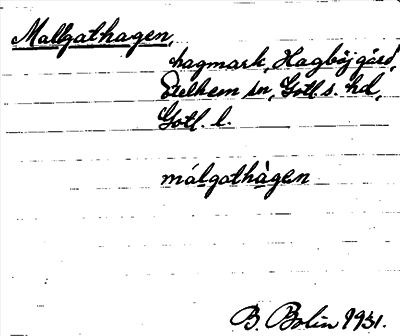 Mallgathagen,
hagmark, Hagböj gård,
Etelhem sn, Gotl s. hd,
Gotl. l.
málgathàgen
B. Bolin 1931.